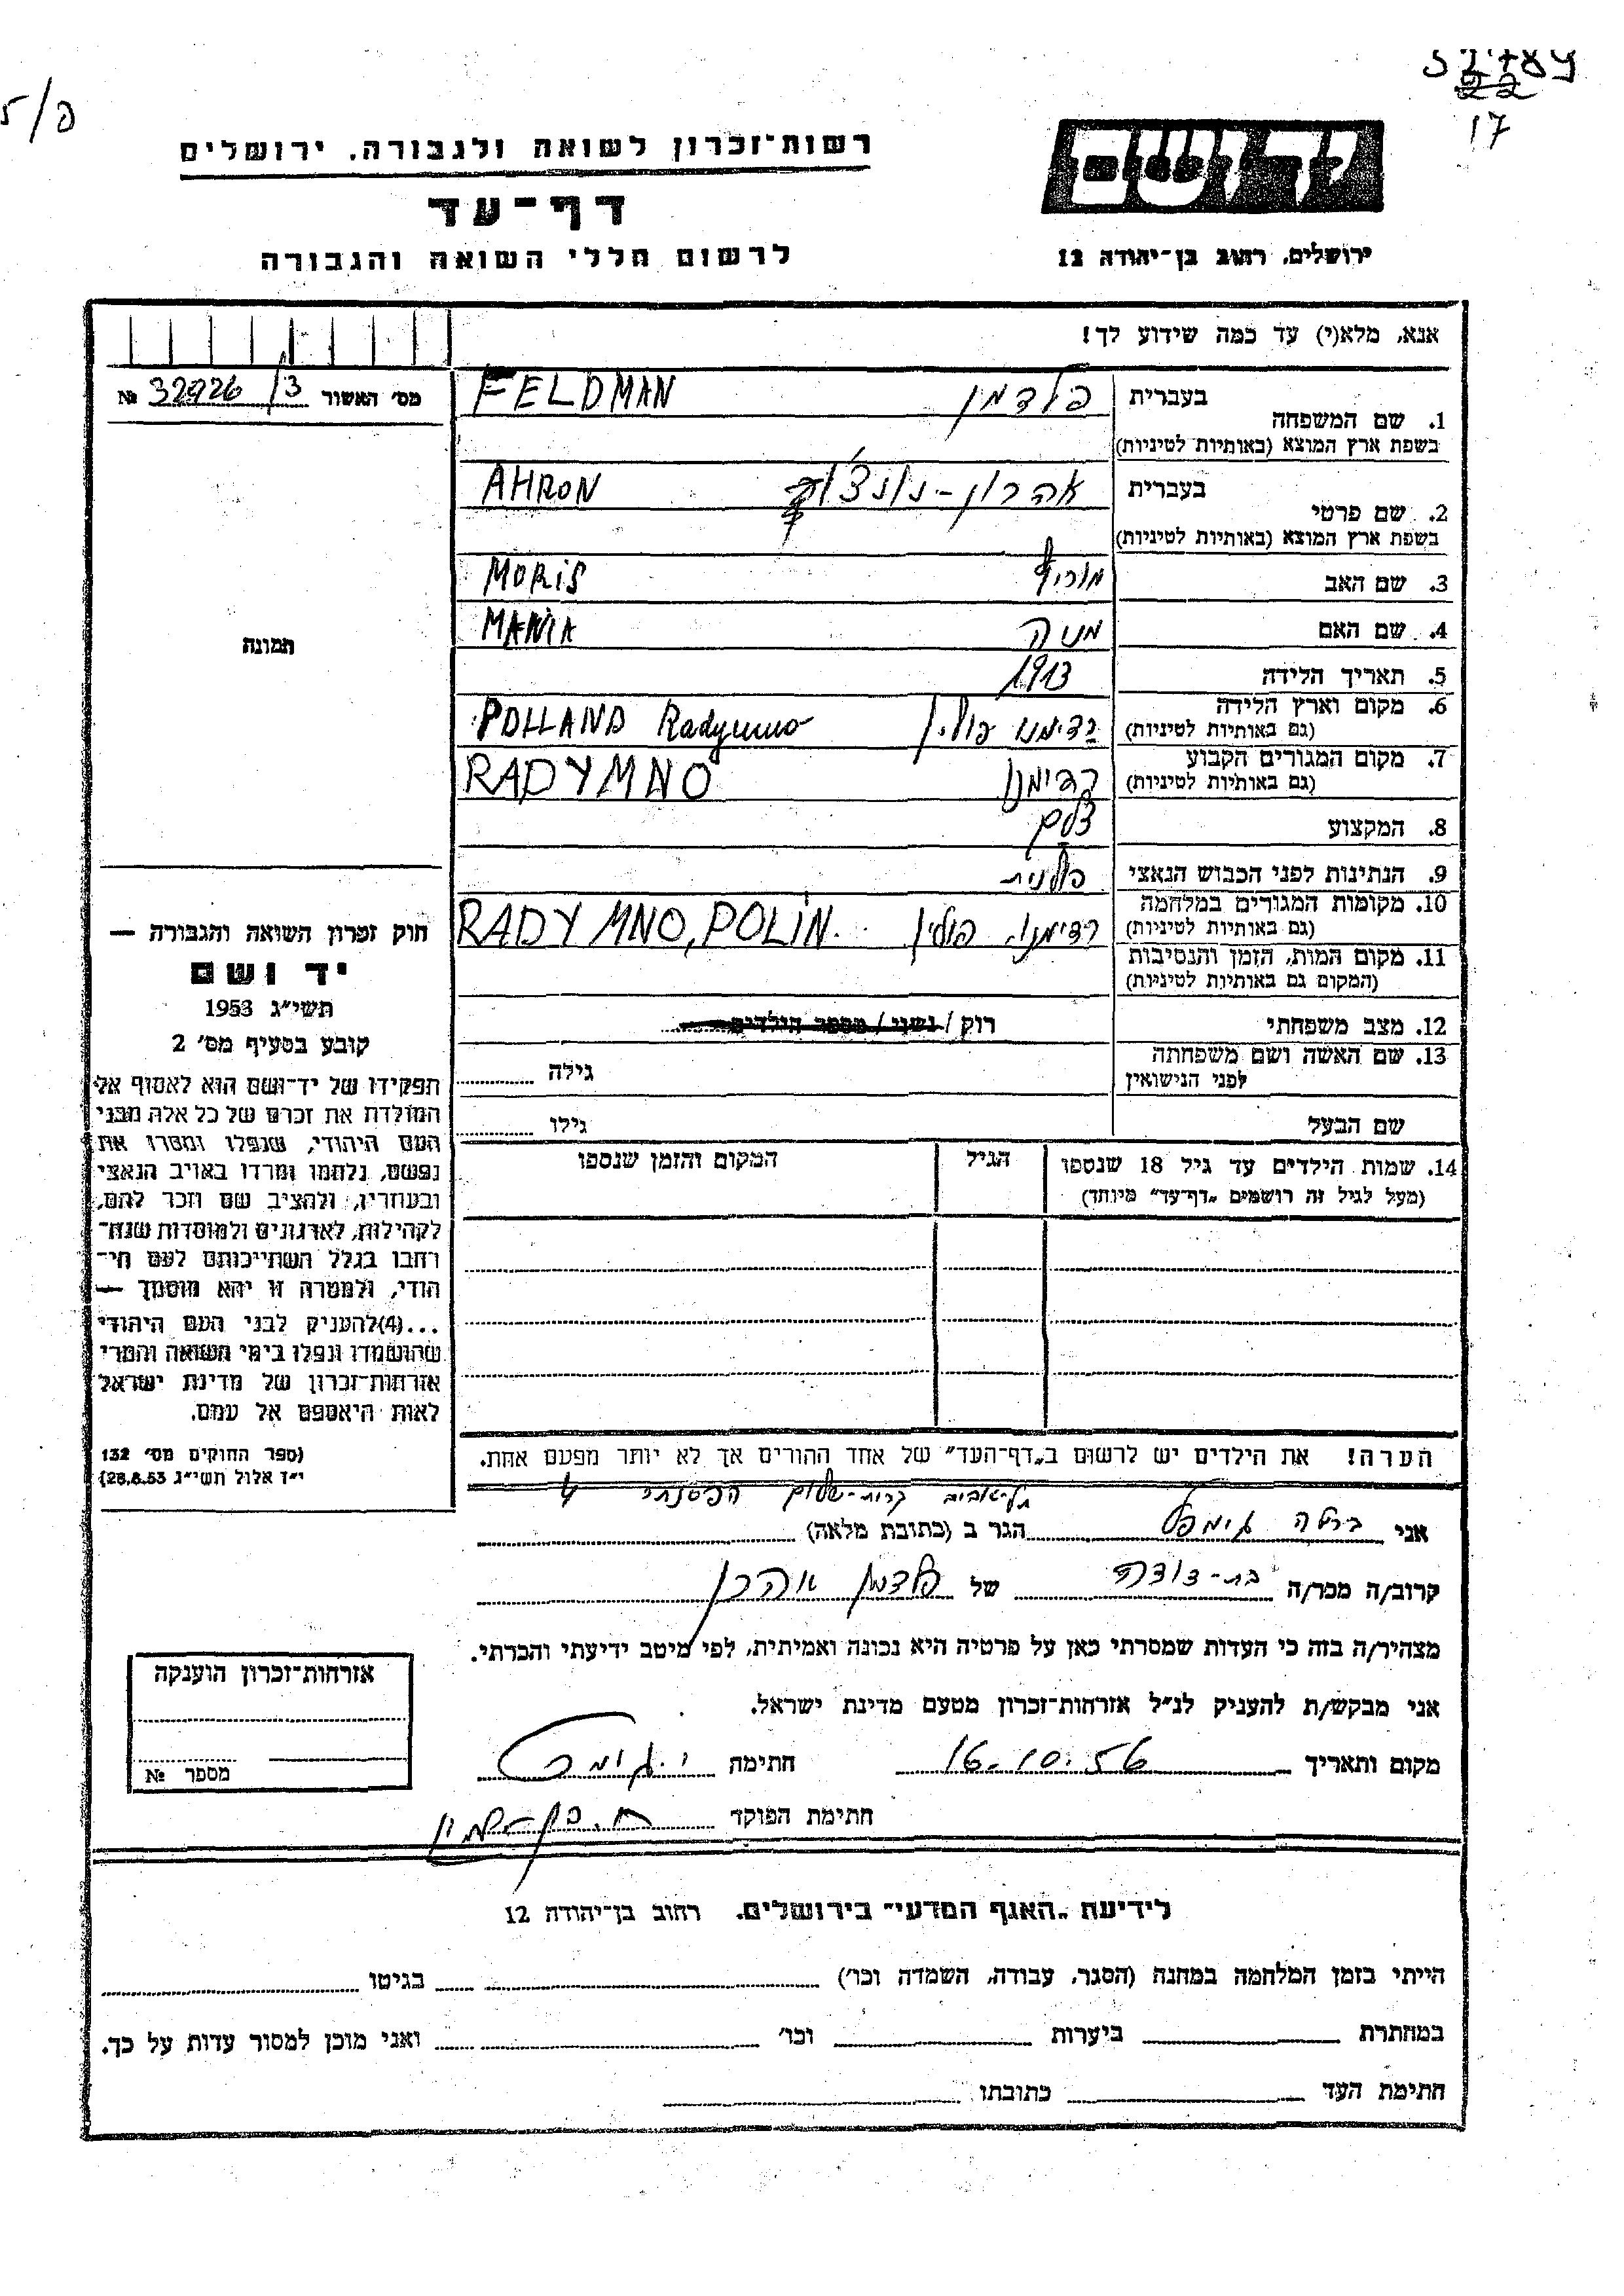 17
רשות־זכרון לשואה ולגבורה, ירושלים
דף־עד
לרשום חללי השואה והגבורה
יד ושם
ירושלים, רחוב בן־יהודה 12
אנא, מלא(י) עד כמה שידוע לך!
מס׳ האשור 32926/3 №
1. שם המשפחה בעברית פלדמן FELDMAN
בשפת ארץ המוצא (באותיות לטיניות)
2. שם פרטי בעברית אהרון AHRON
בשפת ארץ המוצא (באותיות לטיניות)
3. שם האב מוריס MORIS
4. שם האם מניה MANIA
5. תאריך הלידה 1913
6. מקום וארץ הלידה רדימנו פולין POLLAND Radymno
(גם באותיות לטיניות)
7. מקום המגורים הקבוע רדימנו RADYMNO
(גם באותיות לטיניות)
8. המקצוע צלם
9. הנתינות לפני הכבוש הנאצי פולנית
10. מקומות המגורים במלחמה רדימנו, פולין RADYMNO, POLIN.
(גם באותיות לטיניות)
11. מקום המות, הזמן והנסיבות
(המקום גם באותיות לטיניות)
12. מצב משפחתי רוק / נשוי / מספר הילדים
13. שם האשה ושם משפחתה גילה
לפני הנישואין
שם הבעל גילו
14. שמות הילדים עד גיל 18 שנספו הגיל המקום והזמן שנספו
(מעל לגיל זה רושמים „דף־עד” מיוחד)
הערה! את הילדים יש לרשום ב„דף־העד” של אחד ההורים אך לא יותר מפעם אחת.
תמונה
חוק זכרון השואה והגבורה —
יד ושם
תשי״ג 1953
קובע בסעיף מס׳ 2
תפקידו של יד־ושם הוא לאסוף אל
המולדת את זכרם של כל אלה מבני
העם היהודי, שנפלו ומסרו את
נפשם, נלחמו ומרדו באויב הנאצי
ובעוזריו, ולהציב שם וזכר להם,
לקהילות, לארגונים ולמוסדות שנח־
רחבו בגלל השתייכותם לעם הי־
הודי, ולמטרה זו יהא מוסמך —
...(4)להעניק לבני העם היהודי
שהושמדו ונפלו בימי השואה והמרי
אזרחות־זכרון של מדינת ישראל
לאות היאספם אל עמם.
(ספר החוקים מס׳ 132
י״ד אלול תשי״ג 28.8.53)
תל-אביב קרית-שלום 4
אני ברטה גימפל הגר ב (כתובת מלאה)
קרוב/ה מכר/ה בת-דודה של פלדמן אהרן
מצהיר/ה בזה כי העדות שמסרתי כאן על פרטיה היא נכונה ואמיתית, לפי מיטב ידיעתי והכרתי.
אני מבקש/ת להעניק לנ״ל אזרחות־זכרון מטעם מדינת ישראל.
מקום ותאריך 16.10.56 חתימה
חתימת הפוקד
אזרחות־זכרון הוענקה
מספר №
לידיעת „האגף המדעי” בירושלים, רחוב בן־יהודה 12
הייתי בזמן המלחמה במחנה (הסגר, עבודה, השמדה וכו׳) בגיטו
במחתרת ביערות וכו׳ ואני מוכן למסור עדות על כך.
חתימת העד כתובתו